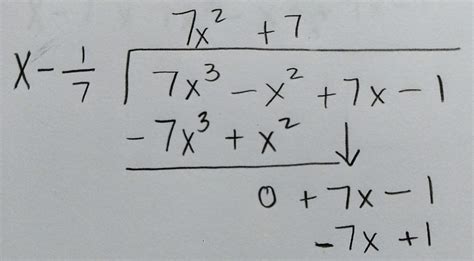 7x² + 7
x - 1/7 ⟌ 7x³ - x² + 7x - 1
- 7x³ + x² ↓
0 + 7x - 1
- 7x + 1